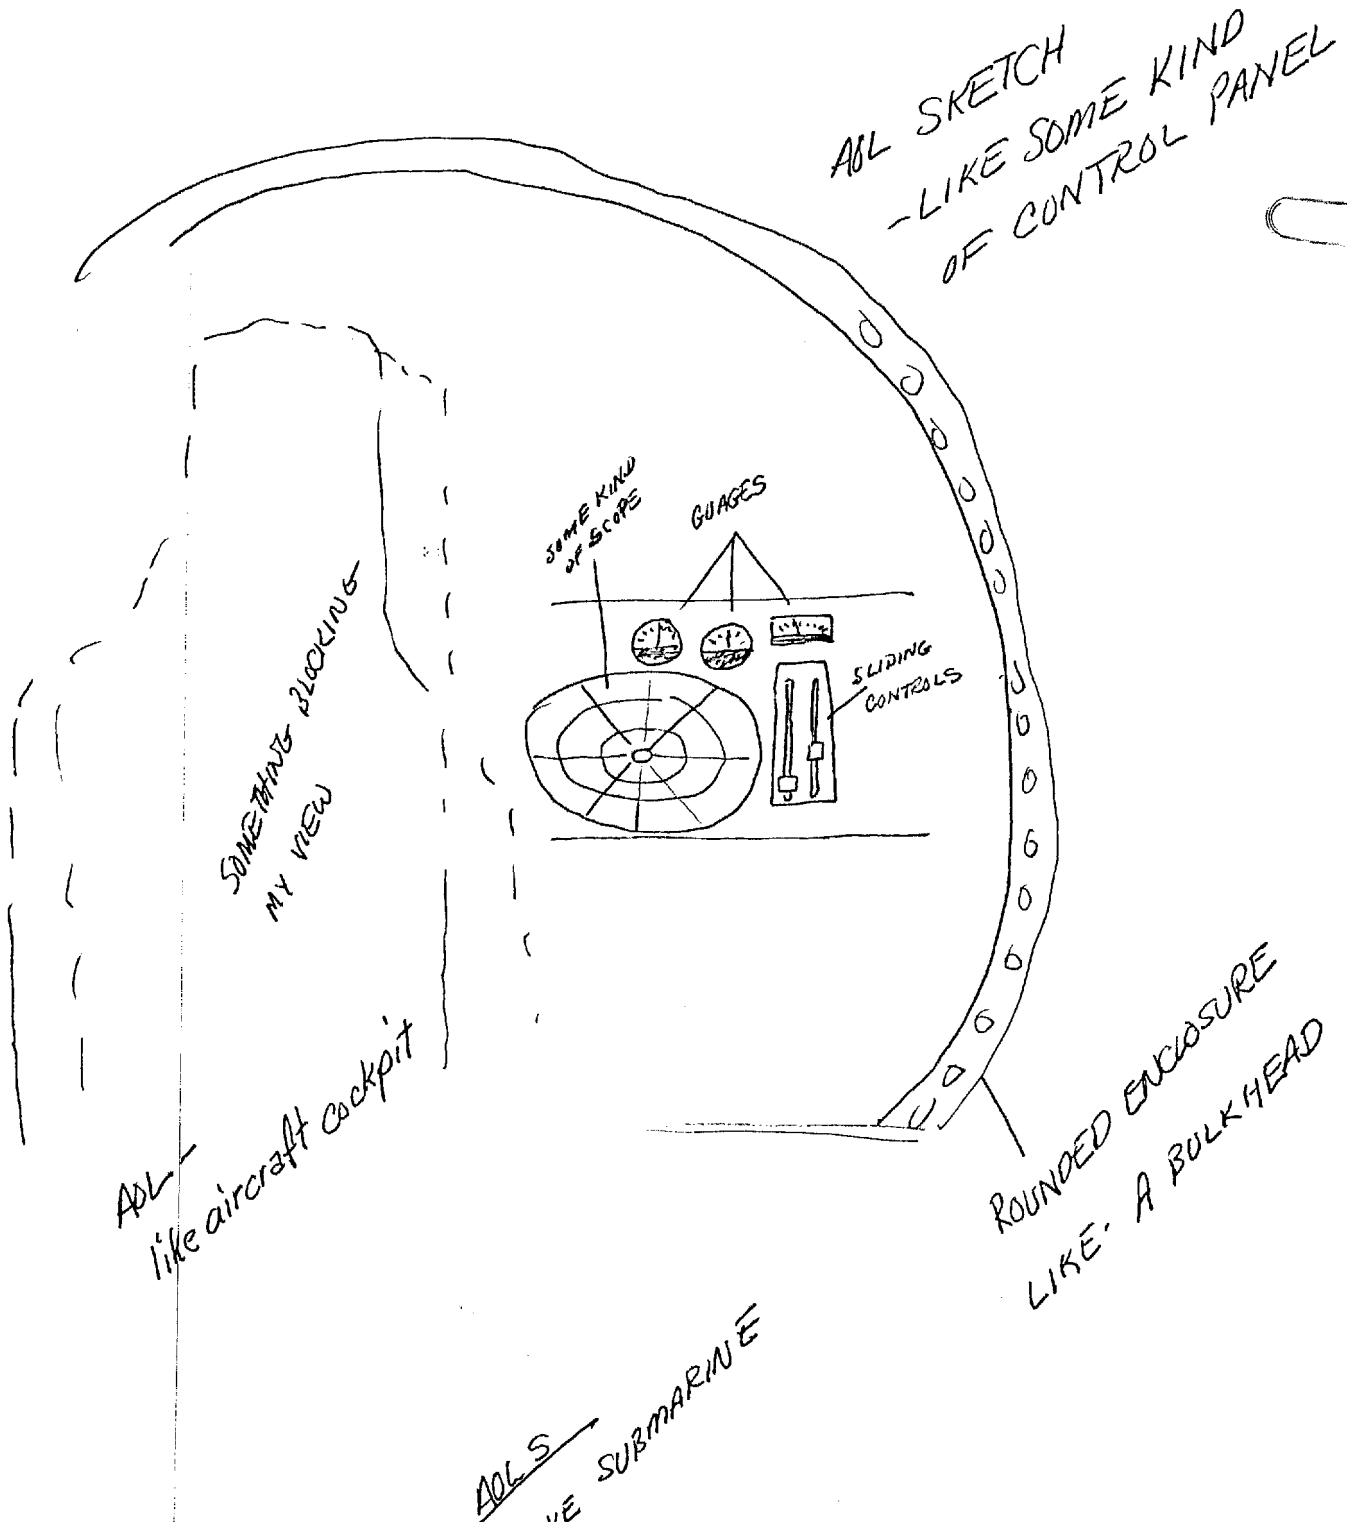 AOL SKETCH
-LIKE SOME KIND
OF CONTROL PANEL
SOME KIND
OF SCOPE
GUAGES
SLIDING
CONTROLS
SOMETHING BLOCKING
MY VIEW
AOL-
like aircraft cockpit
ROUNDED ENCLOSURE
LIKE. A BULKHEAD
AOL S
SUBMARINE